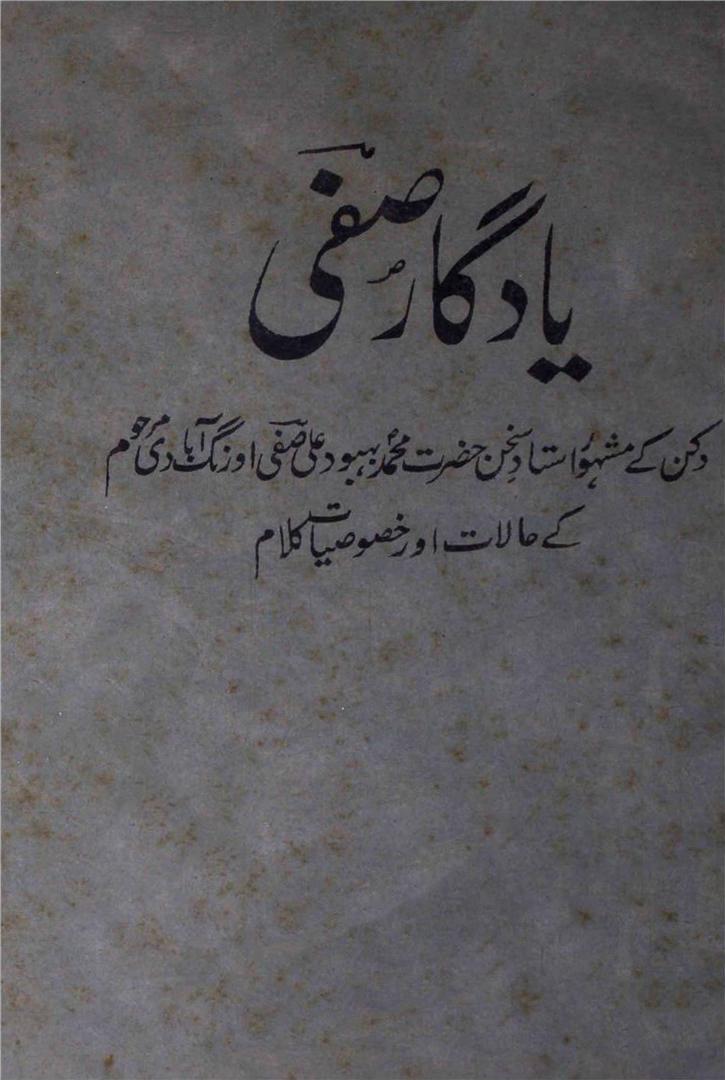 یادگار صفی
دکن کے مشہور استادِ سخن حضرت محمد بہبود علی صفی اورنگ آبادی مرحوم
کے حالات اور خصوصیات کلام